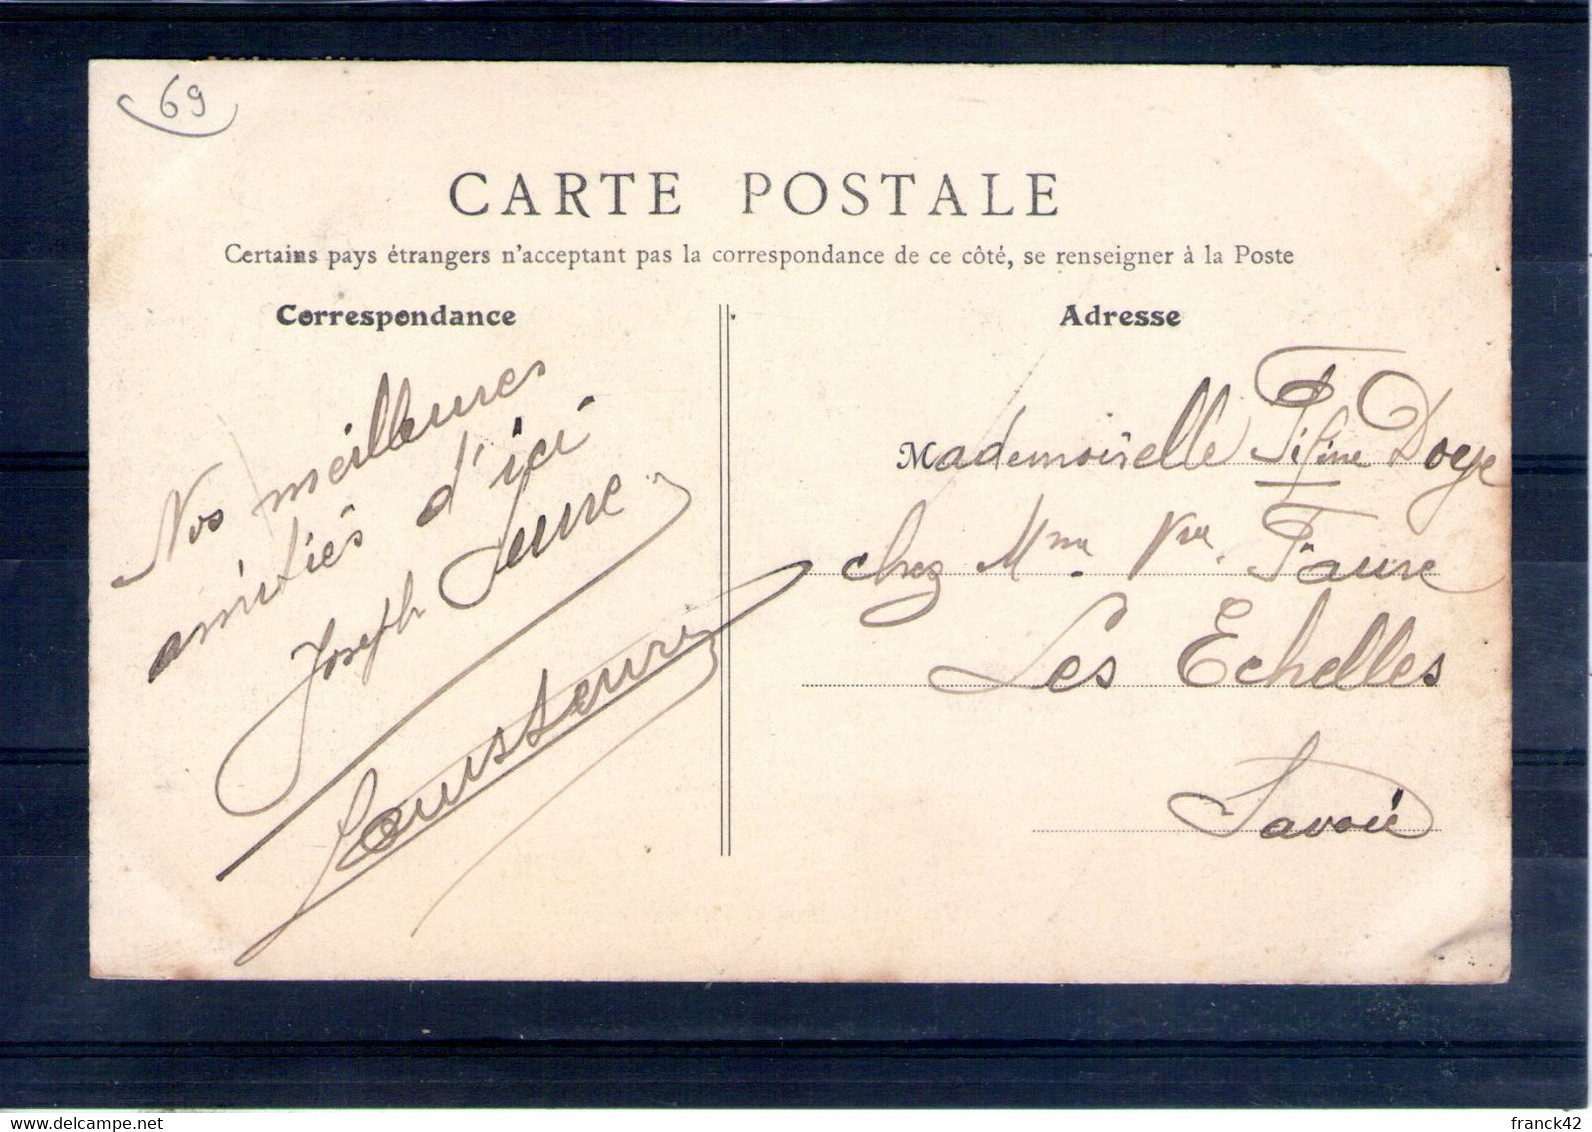 69
CARTE POSTALE
Certains pays étrangers n'acceptant pas la correspondance de ce côté, se renseigner à la Poste
Correspondance
Nos meilleures
amitiés d'ici
Joseph
Adresse
Mademoiselle Fifine Doge
chez Mme Vve Faure
Les Echelles
Savoie
www.delcampe.net
franck42